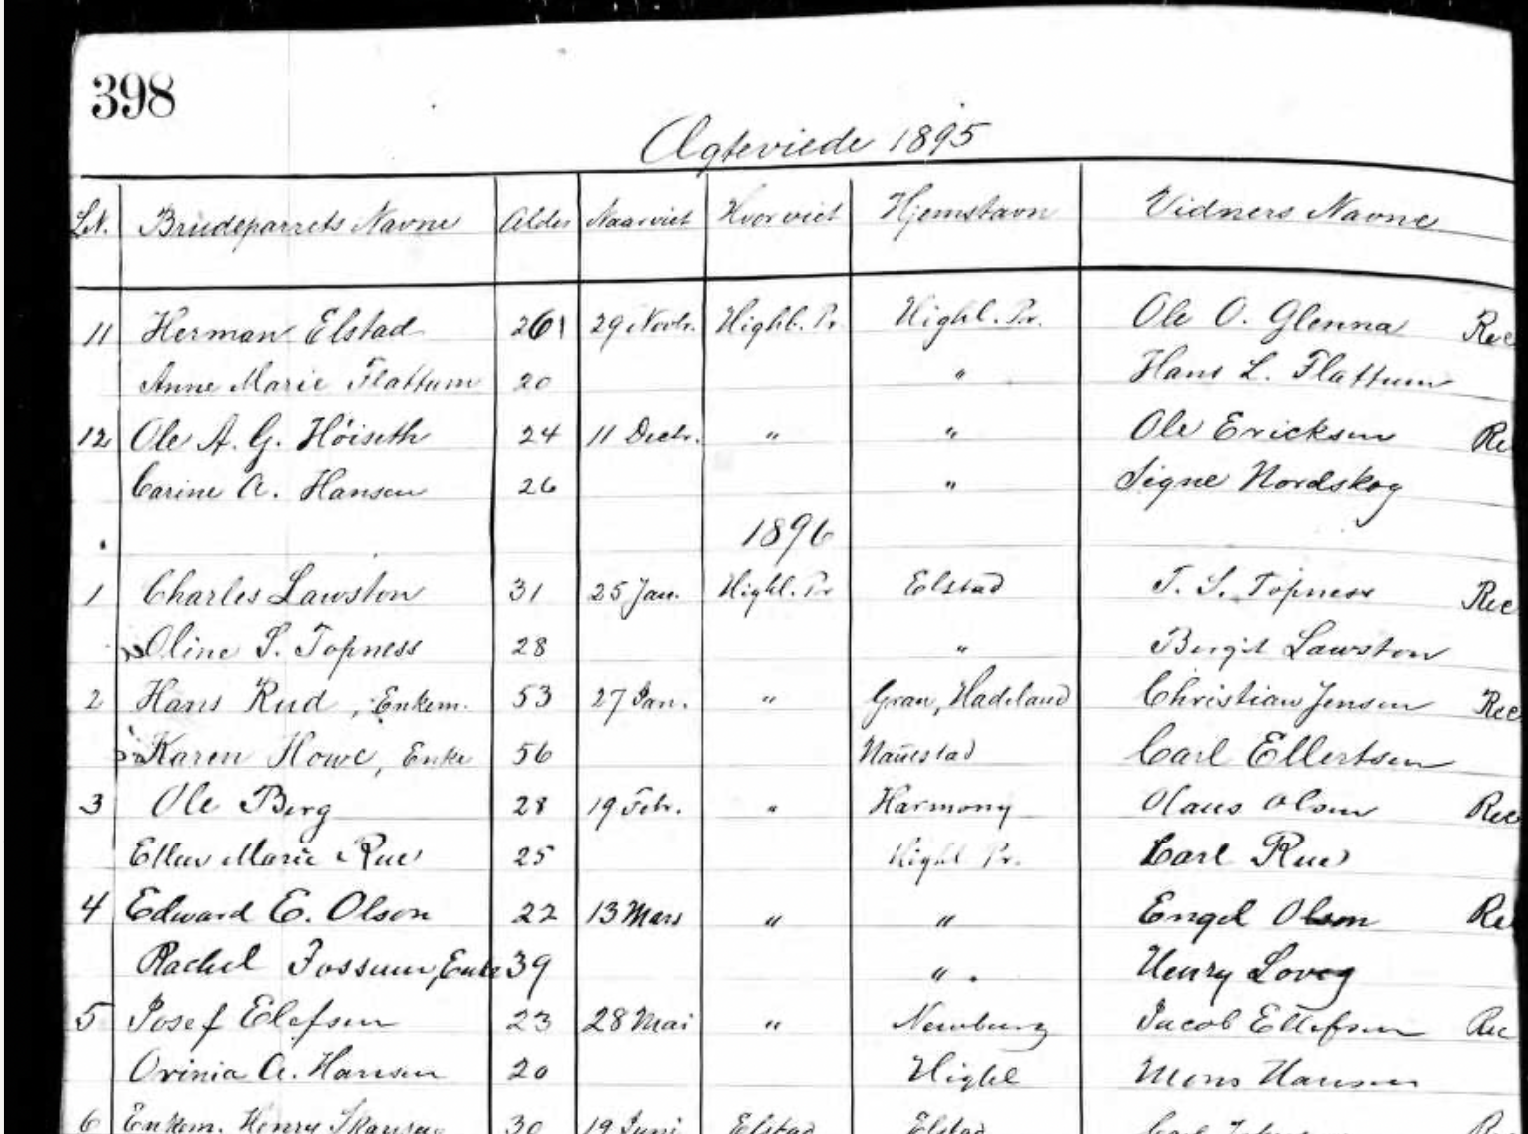 398
Ægteviede 1895
LN. Brudeparrets Navne Alder Naar viet Hvor viet Hjemstavn Vidners Navne
11 Herman Elstad 26 29 Novbr. Highl. Pr. Highl. Pr. Ole O. Glenna Rec
Anne Marie Flattum 20 " Hans L. Flattum
12 Ole A. G. Höiseth 24 11 Decbr. " " Ole Ericksen Re
Carine A. Hansen 26 " Signe Nordskog
1896
1 Charles Lawston 31 25 Jan. Highl. Pr Elstad T. S. Topness Rec
Oline S. Topness 28 " Bergit Lawston
2 Hans Rud, Enkem. 53 27 Jan. " Gran, Hadeland Christian Jensen Rec
Karen Howe, Enke 56 Carl Ellertsen
3 Ole Berg 28 19 Febr. " Harmony Olaus Olsen Rec
Ellen Marie Rue 25 Highl Pr. Carl Rue
4 Edward E. Olson 22 13 Mars " " Engel Olson Re
Rachel Fossum, Enke 39 " . Henry Loveg
5 Josef Elefsen 23 28 Mai " Newburg Jacob Ellefsen Rec
Orinia A. Hansen 20 Highl Mons Hansen
6 Enkem. Henry 30 19 Juni Elstad Elstad Carl